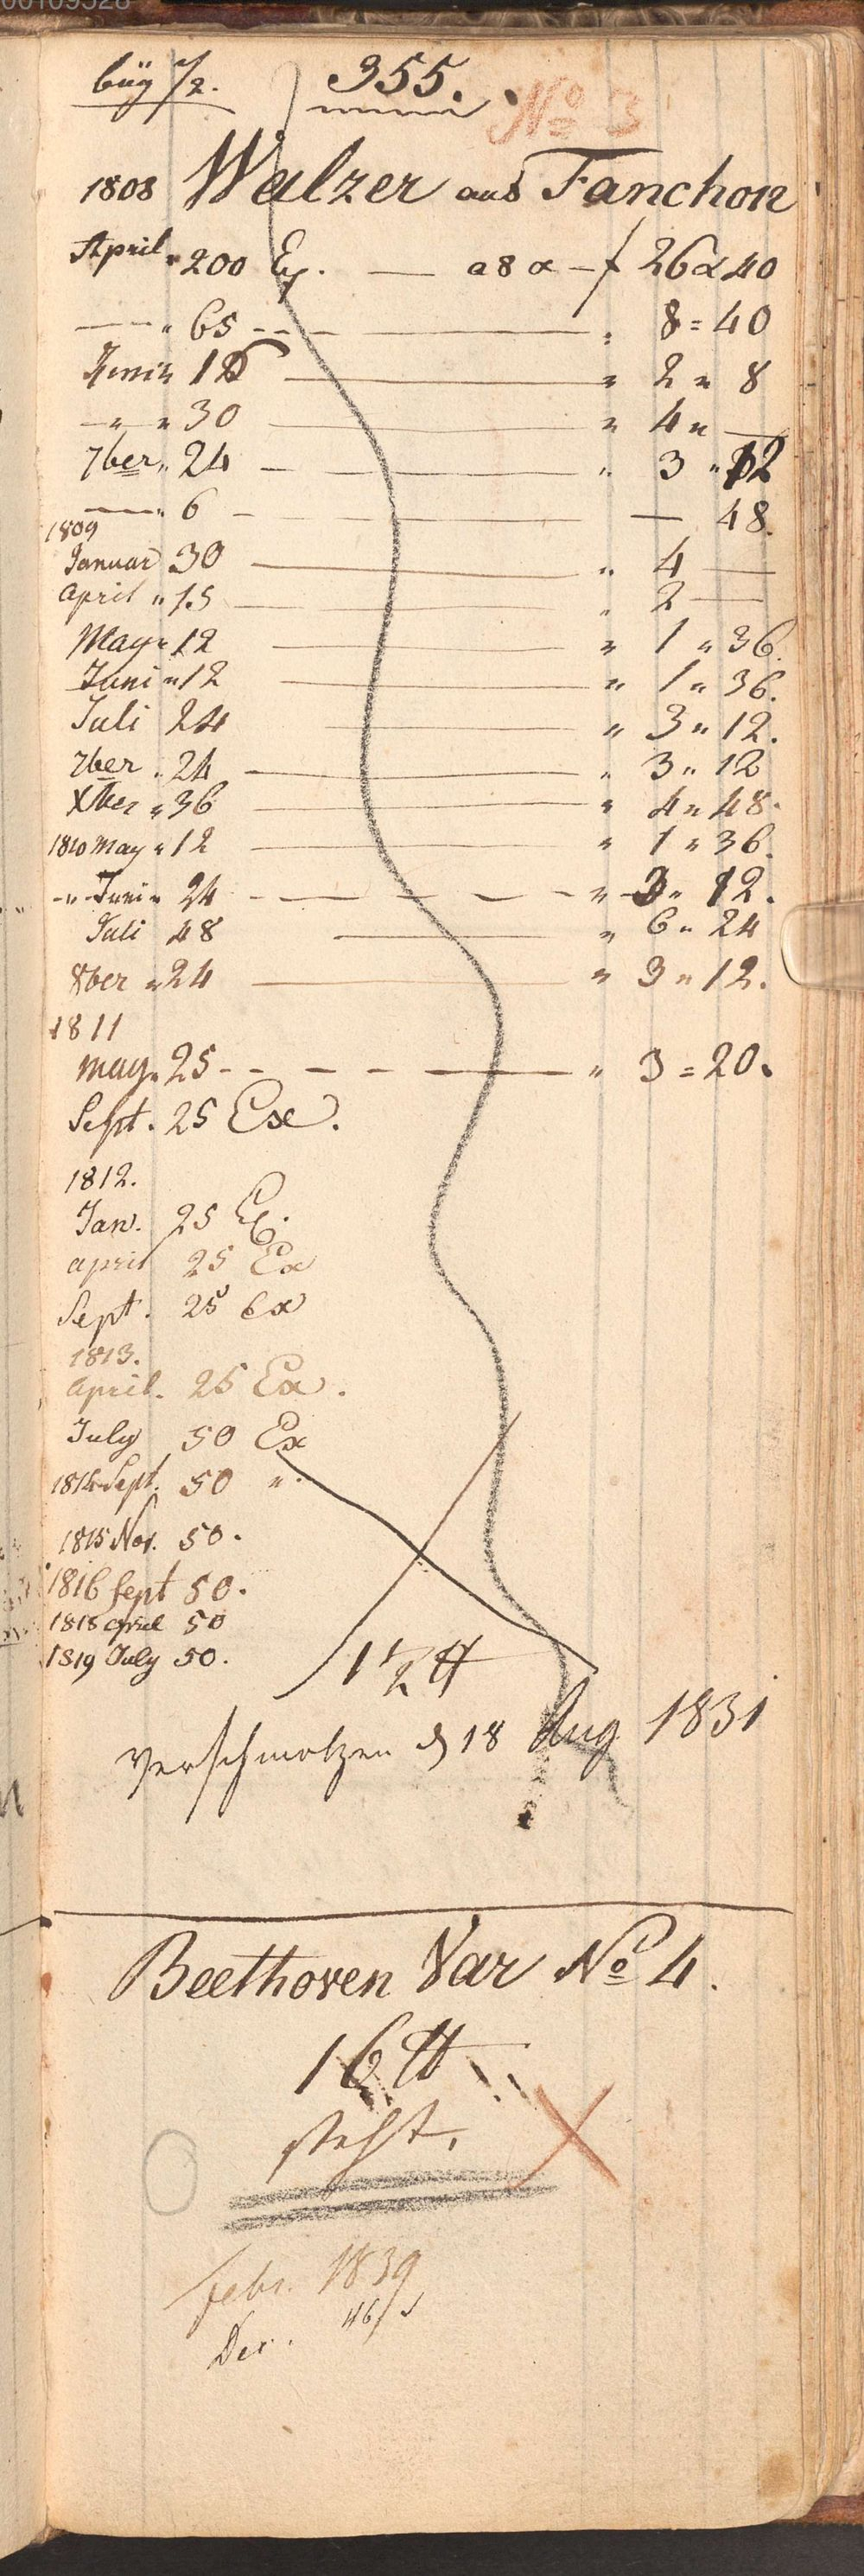 büg 7/2. 355. No 3
1808 Walzer aus Fanchon
April " 200 Ex. — a 8 x — f 26 x 40
— " 65 — " 8 = 40
Juni " 16 — " 2 " 8
— " " 30 — " 4 " —
7ber " 24 — " 3 " 12
— " 6 — — 48.
1809
Januar 30 — " 4 —
April " 15 — " 2 —
May " 12 — " 1 " 36.
Juni " 12 — " 1 " 36.
Juli 24 — " 3 " 12.
7ber " 24 — " 3 " 12
Xber " 36 — " 4 " 48.
1810 May " 12 — " 1 " 36.
- " - Juni " 24 — " 3 " 12.
Juli 48 — " 6 " 24
8ber " 24 — " 3 " 12.
1811
may " 25 — " 3 = 20.
Sept. 25 Ex.
1812.
Jan. 25 Ex.
april 25 Ex
Sept. 25 Ex
1813.
April. 25 Ex.
July 50 Ex
1814 Sept. 50 " .
1815 Nov. 50.
1816 Sept 50.
1818 april 50
1819 July 50.
1 1/2 ℔
verschmolzen d 18 Aug 1831
Beethoven Var No 4.
16 ℔
steht.
febr. 1839
Dec. 46